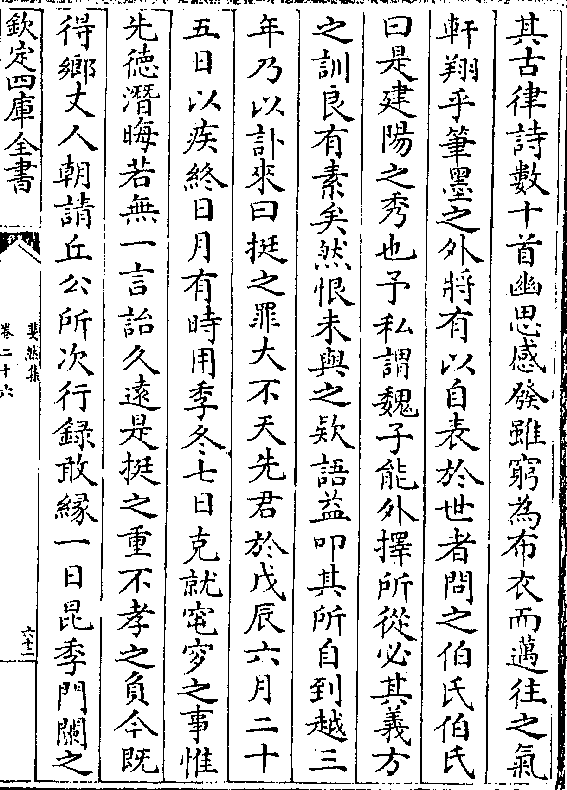 其古律詩數十首幽思感發雖窮為布衣而邁往之氣
軒翔乎筆墨之外將有以自表於世者問之伯氏伯氏
曰是建陽之秀也予私謂魏子能外擇所從必其義方
之訓良有素矣然恨未與之欵語益叩其所自到越三
年乃以訃來曰挺之罪大不天先君於戊辰六月二十
五日以疾終日月有時用季冬七日克就窀穸之事惟
先徳潛晦若無一言詒久遠是挺之重不孝之負今既
得鄉丈人朝請丘公所次行録敢縁一日昆季門闌之
欽定四庫全書
斐然集
卷二十六
六十二